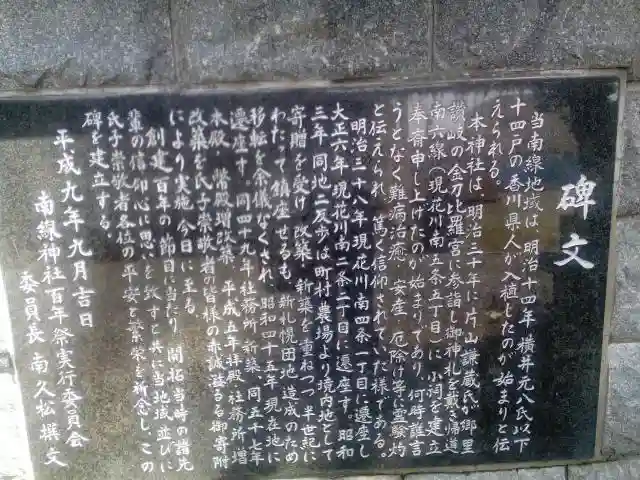 碑文
当南線地域は、明治十四年横井元八氏以下
十四戸の香川県人が入植したのが始まりと伝
えられる。
本神社は、明治三十年に片山謙蔵氏が郷里
讃岐の金刀比羅宮に参詣し御神札を戴き帰道
南六線(現花川南五条五丁目)に小祠を建立
奉斎申し上げたのが始まりであり、何時誰言
うとなく難病治癒、安産、厄除け等に霊験灼
と伝えられ、篤く信仰されていた様である。
明治三十八年現花川南四条一丁目に遷座し
大正六年、現花川南二条二丁目に遷座す。昭和
三年、同地二反歩は町村農場より境内地として
寄贈を受け、改築、新築を重ねつつ、半世紀に
わたって鎮座せるも、新札幌団地造成のため
移転を余儀なくされ、昭和四十五年、現在地に
遷座す。同四十九年社務所新築、同五十七年
本殿・幣殿増改築、平成五年拝殿社務所増
改築を氏子崇敬者の皆様の赤誠溢るる御寄附
により実施、今日に至る。
創建百年の節目に当たり、開拓当時の諸先
輩の信仰心に思いを致すと共に当地域並びに
氏子崇敬者各位の平安と繁栄を祈念し、この
碑を建立する。
平成九年九月吉日
南線神社百年祭実行委員会
委員長 南久松 撰文